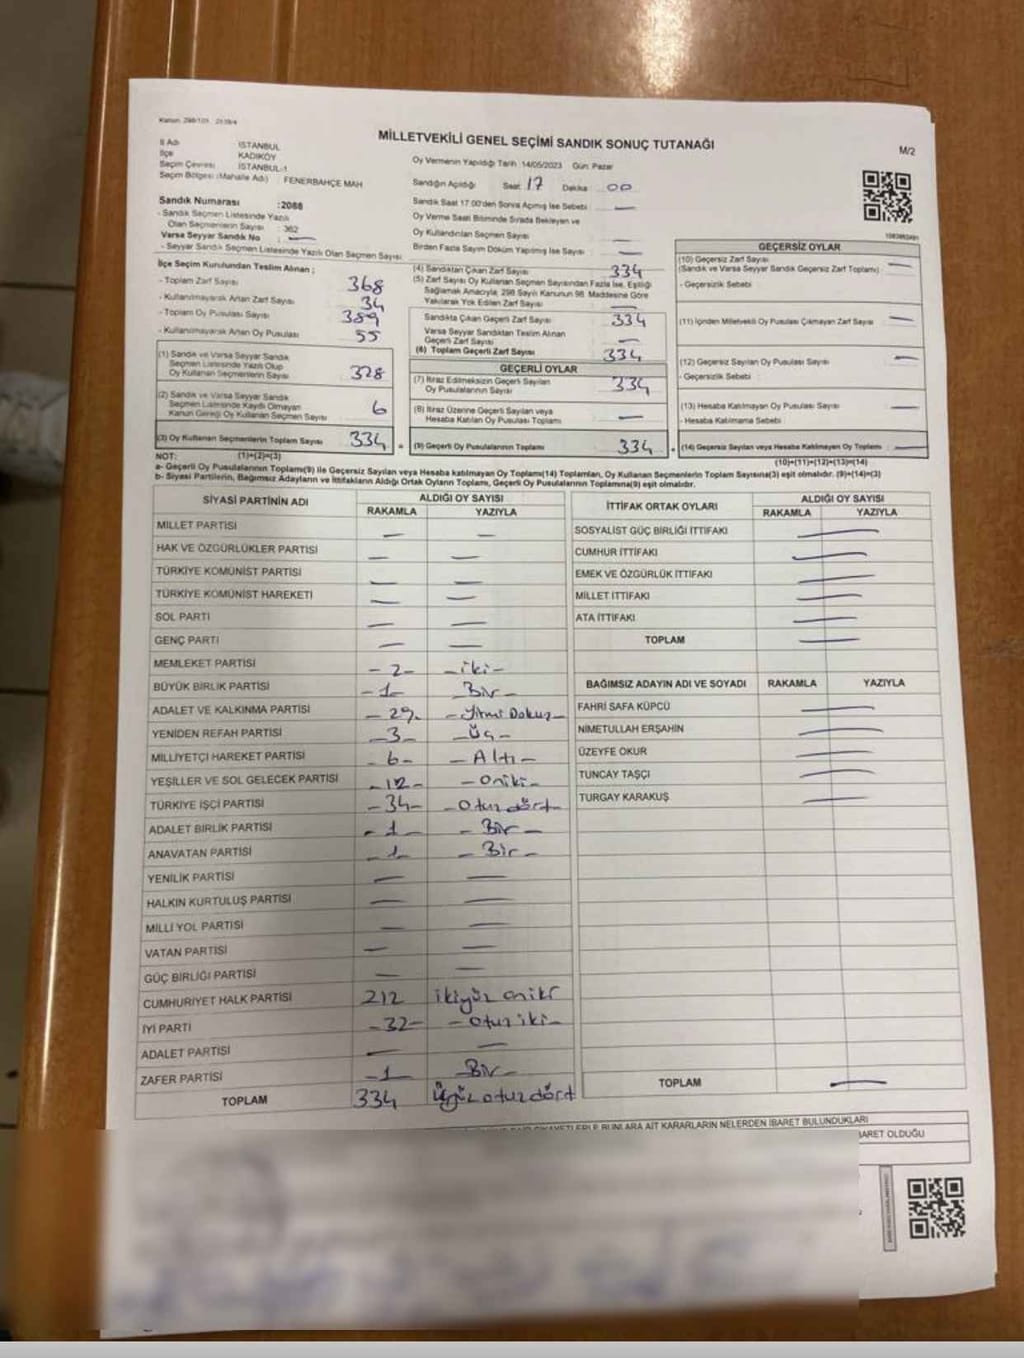 Kanun 298/101, 2839/4
MİLLETVEKİLİ GENEL SEÇİMİ SANDIK SONUÇ TUTANAĞI
M/2
İl Adı İSTANBUL
İlçe KADIKÖY
Seçim Çevresi İSTANBUL-1
Seçim Bölgesi (Mahalle Adı) FENERBAHÇE MAH
Oy Vermenin Yapıldığı Tarih 14/05/2023 Gün: Pazar
Sandığın Açıldığı Saat 17 Dakika 00
Sandık Numarası :2088
- Sandık Seçmen Listesinde Yazılı
Olan Seçmenlerin Sayısı : 362
Varsa Seyyar Sandık No : —
- Seyyar Sandık Seçmen Listesinde Yazılı Olan Seçmen Sayısı
Sandık Saat 17:00'den Sonra Açılmış İse Sebebi —
Oy Verme Saati Bitiminde Sırada Bekleyen ve
Oy Kullandırılan Seçmen Sayısı —
Birden Fazla Sayım Döküm Yapılmış İse Sayısı —
İlçe Seçim Kurulundan Teslim Alınan ;
- Toplam Zarf Sayısı 368
- Kullanılmayarak Artan Zarf Sayısı 34
- Toplam Oy Pusulası Sayısı 389
- Kullanılmayarak Artan Oy Pusulası 55
(1) Sandık ve Varsa Seyyar Sandık
Seçmen Listesinde Yazılı Olup
Oy Kullanan Seçmenlerin Sayısı 328
(2) Sandık ve Varsa Seyyar Sandık
Seçmen Listesinde Kaydı Olmayan
Kanun Gereği Oy Kullanan Seçmen Sayısı 6
(3) Oy Kullanan Seçmenlerin Toplam Sayısı 334
(4) Sandıktan Çıkan Zarf Sayısı 334
(5) Zarf Sayısı Oy Kullanan Seçmen Sayısından Fazla İse, Eşitliği
Sağlamak Amacıyla, 298 Sayılı Kanunun 98. Maddesine Göre
Yakılarak Yok Edilen Zarf Sayısı —
Sandıkta Çıkan Geçerli Zarf Sayısı 334
Varsa Seyyar Sandıktan Teslim Alınan
Geçerli Zarf Sayısı —
(6) Toplam Geçerli Zarf Sayısı 334
GEÇERLİ OYLAR
(7) İtiraz Edilmeksizin Geçerli Sayılan
Oy Pusulalarının Sayısı 334
(8) İtiraz Üzerine Geçerli Sayılan veya
Hesaba Katılan Oy Pusulası Toplamı —
= (9) Geçerli Oy Pusulalarının Toplamı 334
GEÇERSİZ OYLAR
(10) Geçersiz Zarf Sayısı —
(Sandık ve Varsa Seyyar Sandık Geçersiz Zarf Toplamı)
- Geçersizlik Sebebi
(11) İçinden Milletvekili Oy Pusulası Çıkmayan Zarf Sayısı —
(12) Geçersiz Sayılan Oy Pusulası Sayısı —
- Geçersizlik Sebebi :
(13) Hesaba Katılmayan Oy Pusulası Sayısı —
- Hesaba Katılmama Sebebi
+ (14) Geçersiz Sayılan veya Hesaba Katılmayan Oy Toplamı —
NOT: (1)+(2)=(3)
(10)+(11)+(12)+(13)=(14)
a- Geçerli Oy Pusulalarının Toplamı(9) ile Geçersiz Sayılan veya Hesaba katılmayan Oy Toplamı(14) Toplamları, Oy Kullanan Seçmenlerin Toplam Sayısına(3) eşit olmalıdır. (9)+(14)=(3)
b- Siyasi Partilerin, Bağımsız Adayların ve İttifakların Aldığı Ortak Oyların Toplamı, Geçerli Oy Pusulalarının Toplamına(9) eşit olmalıdır.
SİYASİ PARTİNİN ADI ALDIĞI OY SAYISI
RAKAMLA YAZIYLA
MİLLET PARTİSİ — —
HAK VE ÖZGÜRLÜKLER PARTİSİ — —
TÜRKİYE KOMÜNİST PARTİSİ — —
TÜRKİYE KOMÜNİST HAREKETİ — —
SOL PARTİ — —
GENÇ PARTİ — —
MEMLEKET PARTİSİ -2- -iki-
BÜYÜK BİRLİK PARTİSİ -1- Bir-
ADALET VE KALKINMA PARTİSİ -29- -Yirmi Dokuz-
YENİDEN REFAH PARTİSİ -3- -Üç-
MİLLİYETÇİ HAREKET PARTİSİ -6- -Altı-
YEŞİLLER VE SOL GELECEK PARTİSİ -12- -Oniki-
TÜRKİYE İŞÇİ PARTİSİ -34- -Otuz dört-
ADALET BİRLİK PARTİSİ -1- -Bir-
ANAVATAN PARTİSİ -1- -Bir-
YENİLİK PARTİSİ — —
HALKIN KURTULUŞ PARTİSİ — —
MİLLİ YOL PARTİSİ — —
VATAN PARTİSİ — —
GÜÇ BİRLİĞİ PARTİSİ — —
CUMHURİYET HALK PARTİSİ 212 ikiyüz oniki
İYİ PARTİ -32- -Otuz iki-
ADALET PARTİSİ — —
ZAFER PARTİSİ -1- -Bir-
TOPLAM 334 Üçyüz otuz dört
İTTİFAK ORTAK OYLARI ALDIĞI OY SAYISI
RAKAMLA YAZIYLA
SOSYALİST GÜÇ BİRLİĞİ İTTİFAKI —
CUMHUR İTTİFAKI —
EMEK VE ÖZGÜRLÜK İTTİFAKI —
MİLLET İTTİFAKI —
ATA İTTİFAKI —
TOPLAM —
BAĞIMSIZ ADAYIN ADI VE SOYADI RAKAMLA YAZIYLA
FAHRİ SAFA KÜPCÜ —
NİMETULLAH ERŞAHİN —
ÜZEYFE OKUR —
TUNCAY TAŞÇI —
TURGAY KARAKUŞ —
TOPLAM —
BUNLARA AİT KARARLARIN NELERDEN İBARET BULUNDUKLARI
BARET OLDUĞU